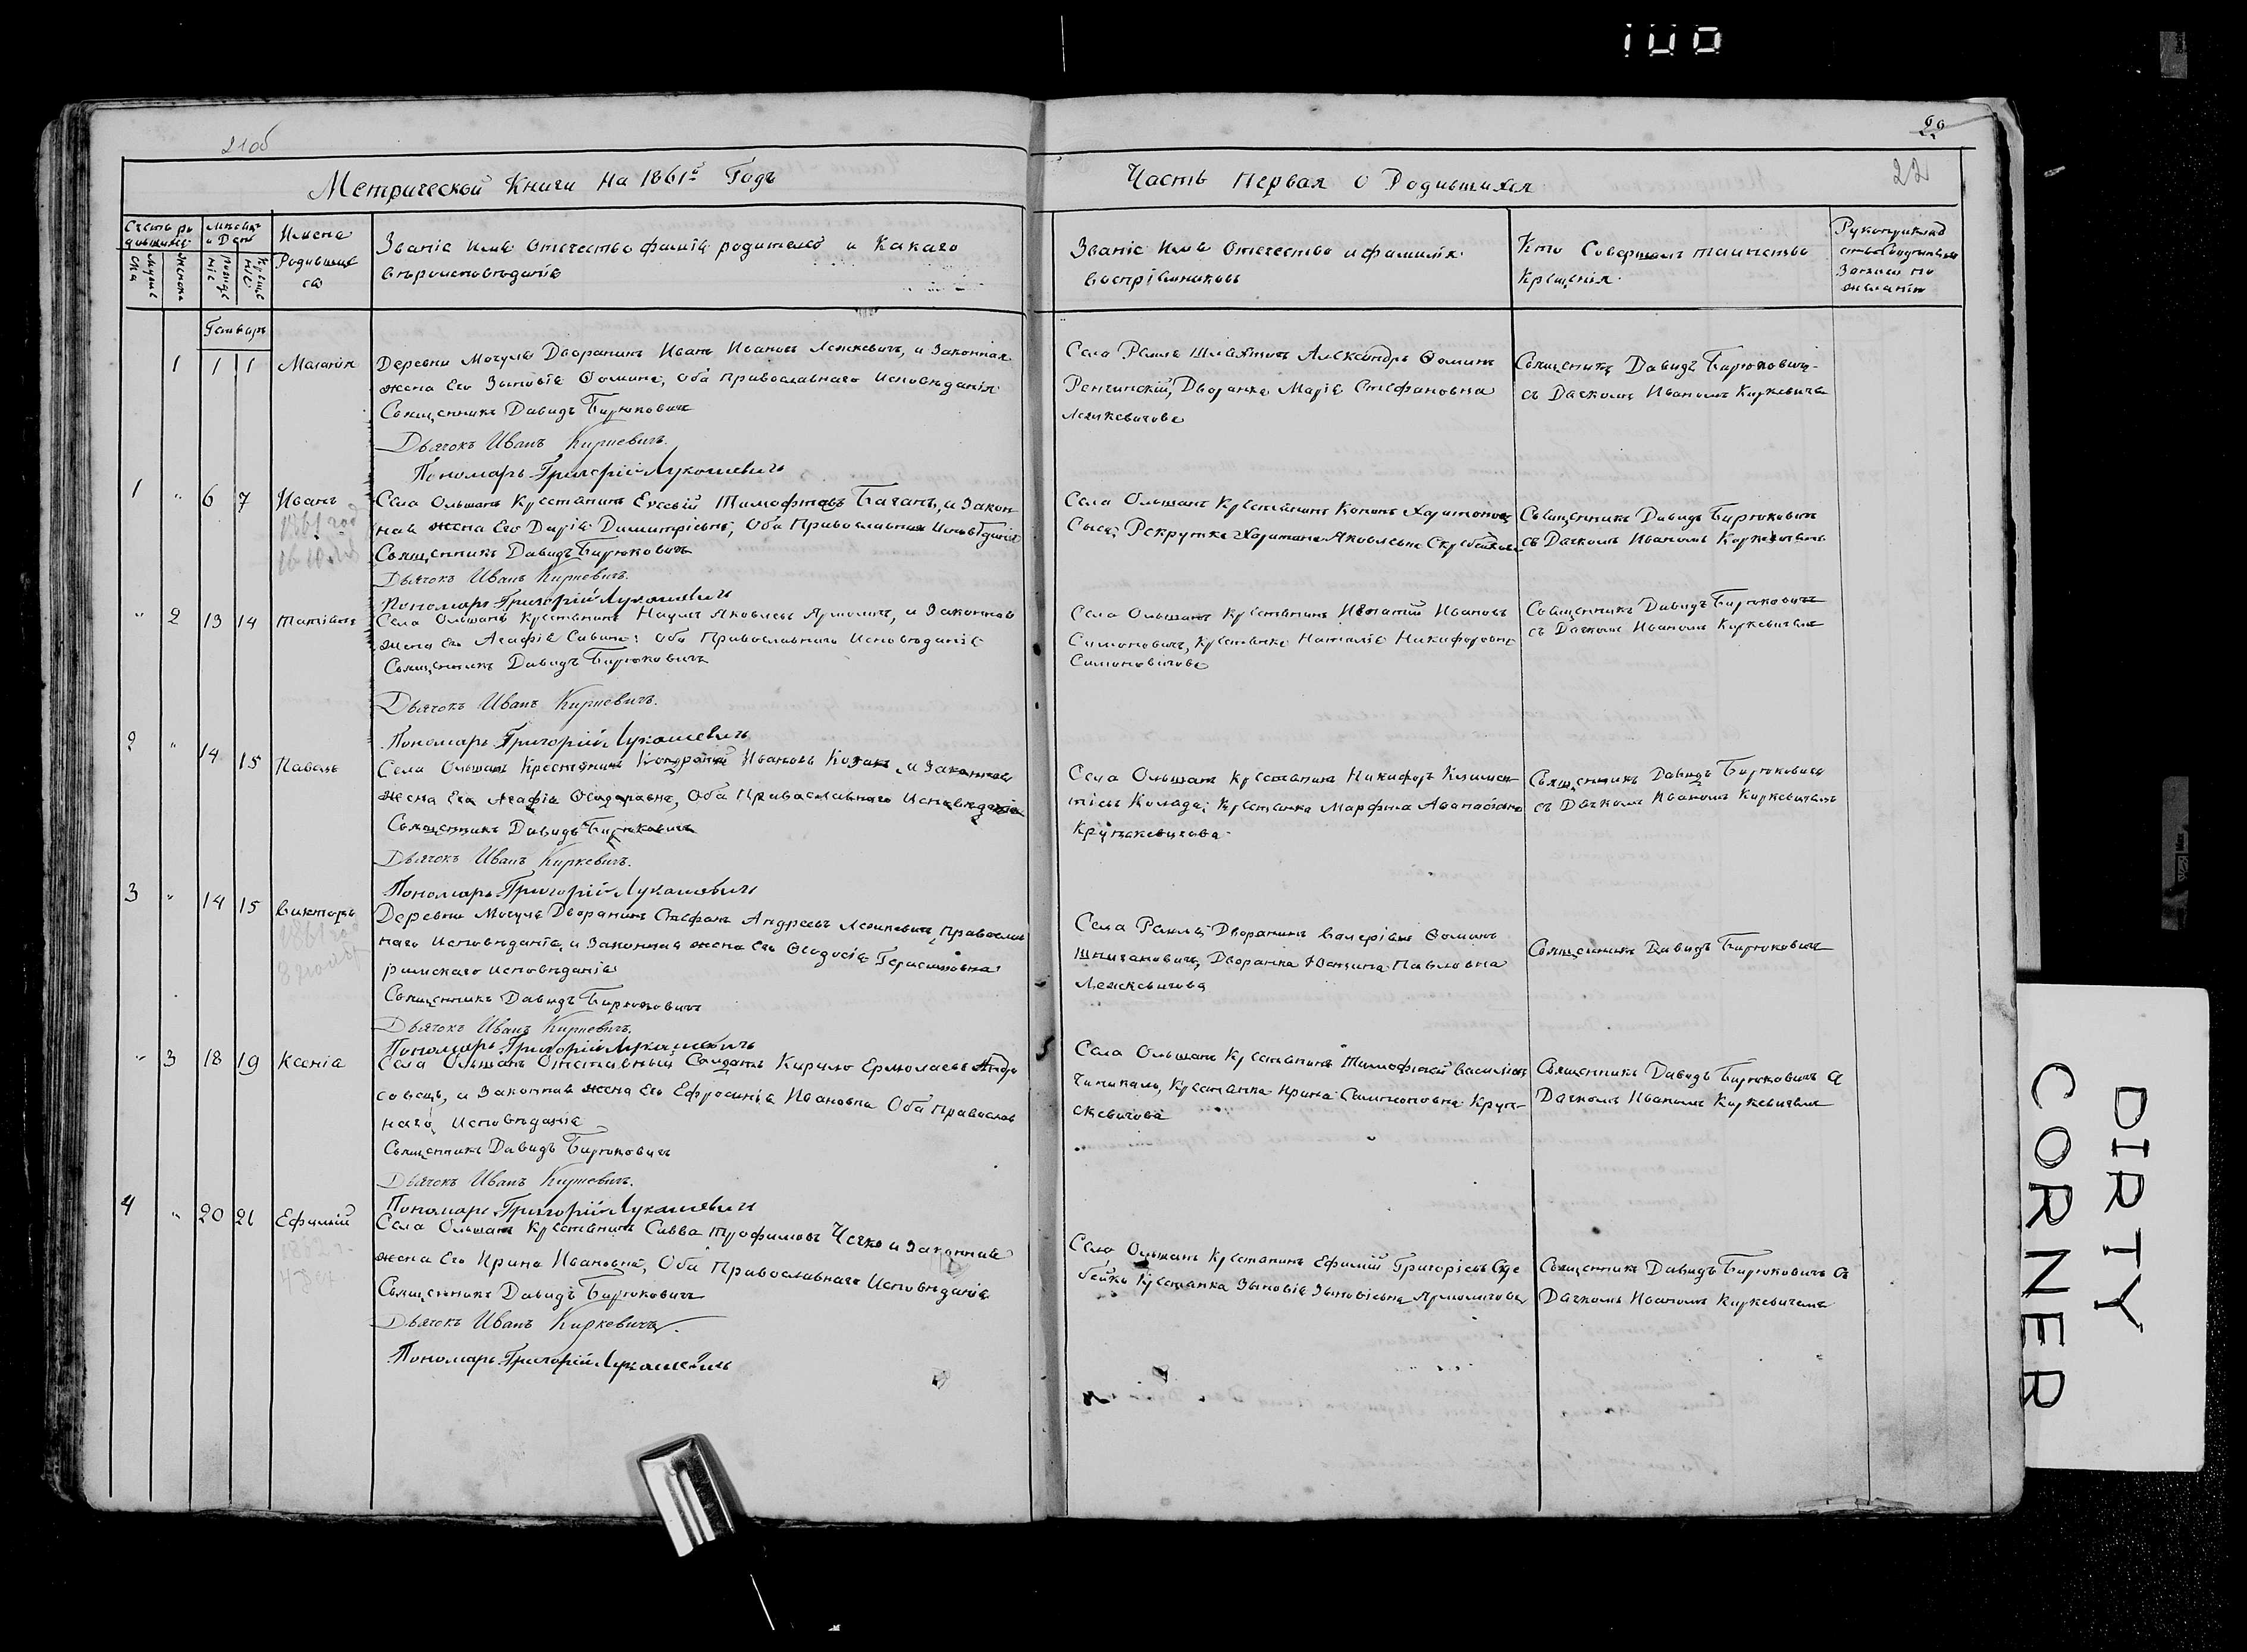 100
21об
22
Метрической Книги на 1861й Годъ
Часть Первая о Родившихся
22
Счетъ ро
дившихс
Мѣсяцъ
и День
Имена
Родивших
ся
Званіе Имя Отечество фамилія родителей и Какаго
вѣроисповѣданія
Званіе Имя Отечество и фамилія
воспріемниковъ
Кто Совершалъ таинство
Крещенія
Рукоприклад
Записи по
желанію
Генварь
1 1 1 Маланія
Деревни Мочулы Дворанинъ Иванъ Ивановъ Лежкевичъ, и Законная
жена Его Зыновія Фомина, оба православнаго Исповѣданія
Священникъ Давидъ Бирюковичъ
Дьячокъ Иванъ Киркевичъ.
Пономарь Григорій Лукашевичъ
Села Шляхтичъ Александръ Фоминъ
Дворанка Марія Стефановна
Лежкевичова
Священникъ Давидъ Бирюковичъ
съ Дьячкомъ Иваномъ Киркевичемъ
1 " 6 7 Иванъ
1861 год
Села Ольшанъ Крестанинъ Евсевій Тимофтеовъ и Закон
ная жена Его Дарія Димитріевна, Оба Православнаго Исповѣданія
Священникъ Давидъ Бирюковичъ
Дьячокъ Иванъ Киркевичъ.
Пономарь Григорій Лукашевичъ
Села Ольшанъ Крестанинъ Харитоновъ
Рекрутка Яковлевна
Священникъ Давидъ Бирюковичъ
съ Дьячкомъ Иваномъ Киркевичемъ
" 2 13 14 Татіана
Села Ольшанъ Крестанинъ Наумъ Яковлевъ Ярмоличъ, и Законная
жена Его Агафія Савина; Оба Православнаго Исповѣданія
Священникъ Давидъ Бирюковичъ
Дьячокъ Иванъ Киркевичъ.
Пономарь Григорій Лукашевичъ
Села Ольшанъ Крестанинъ Игнатій Ивановъ
Симоновичъ, Крестанка Наталія Никифоровна
Симоновичова
Священникъ Давидъ Бирюковичъ
съ Дьячкомъ Иваномъ Киркевичемъ
2 " 14 15 Павелъ
Села Ольшанъ Крестянинъ Кондратій Ивановъ Козакъ, и Законная
жена Его Агафія Феодоровна, Оба Православнаго Исповѣданія
Священникъ Давидъ Бирюковичъ
Дьячокъ Иванъ Киркевичъ.
Пономарь Григорій Лукашевичъ
Села Ольшанъ Крестанинъ Никифоръ Климен
тіевъ Коляда; Крестанка Марфина Афанасіевна
Крупскевичова
Священникъ Давидъ Бирюковичъ
съ Дьячкомъ Иваномъ Киркевичемъ
3 " 14 15 Викторъ
1861 год
Деревни Мочулъ Дворанинъ Стефанъ Андреевъ Лежкевичъ, Православ
наго Исповѣданія, и Законная жена Его Феодосія Герасимовна
римскаго исповѣданія
Священникъ Давидъ Бирюковичъ
Дьячокъ Иванъ Киркевичъ.
Пономарь Григорій Лукашевичъ
Села Дворанинъ Валеріанъ Фоминъ
Дворанка Павловна
Лежкевичова
Священникъ Давидъ Бирюковичъ
" 3 18 19 Ксенія
Села Ольшанъ Отставный Солдатъ Кирило Ермолаевъ
и Законная жена Его Ефросинія Ивановна Оба Православ
наго Исповѣданія
Священникъ Давидъ Бирюковичъ
Дьячокъ Иванъ Киркевичъ.
Пономарь Григорій Лукашевичъ
Села Ольшанъ Крестанинъ Тимофтей Василіевъ
Крестанка Ирина Самсоновна Круп-
скевичова
Священникъ Давидъ Бирюковичъ съ
Дьячкомъ Иваномъ Киркевичемъ
4 " 20 21 Ефимій
1862 г.
4 дек.
Села Ольшанъ Крестанинъ Савва Трофимовъ и Законная
жена Его Ирина Ивановна, Оба Православнаго Исповѣданія
Священникъ Давидъ Бирюковичъ
Дьячокъ Иванъ Киркевичъ.
Пономарь Григорій Лукашевичъ
Села Ольшанъ Крестанинъ Ефимій Григоріевъ
Крестанка Зыновія Зыновіевна Ярмоличова
Священникъ Давидъ Бирюковичъ съ
Дьячкомъ Иваномъ Киркевичемъ
DIRTY
CORNER